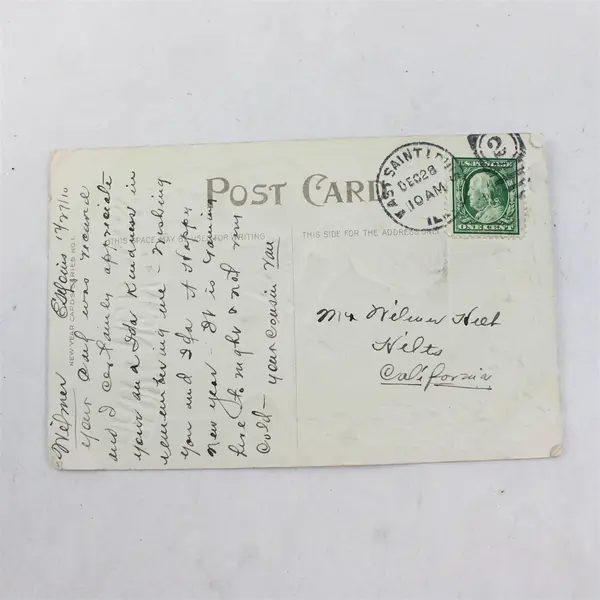 POST CARD
THIS SPACE MAY BE USED FOR WRITING
THIS SIDE FOR THE ADDRESS ONLY
NEW YEAR CARDS SERIES NO 1
EAST SAINT LOUIS
DEC 28
10 AM
ILL
2
ONE CENT
Mr Wilmer Hilt
Hilts
California
E St Louis 12/27/10
Wilmer
your card was received
and I certainly appreciate
your and Ida Kindness in
remembering me - wishing
You and Ida A Happy
New year - It is raining
here to night & not very
Cold - your Cousin